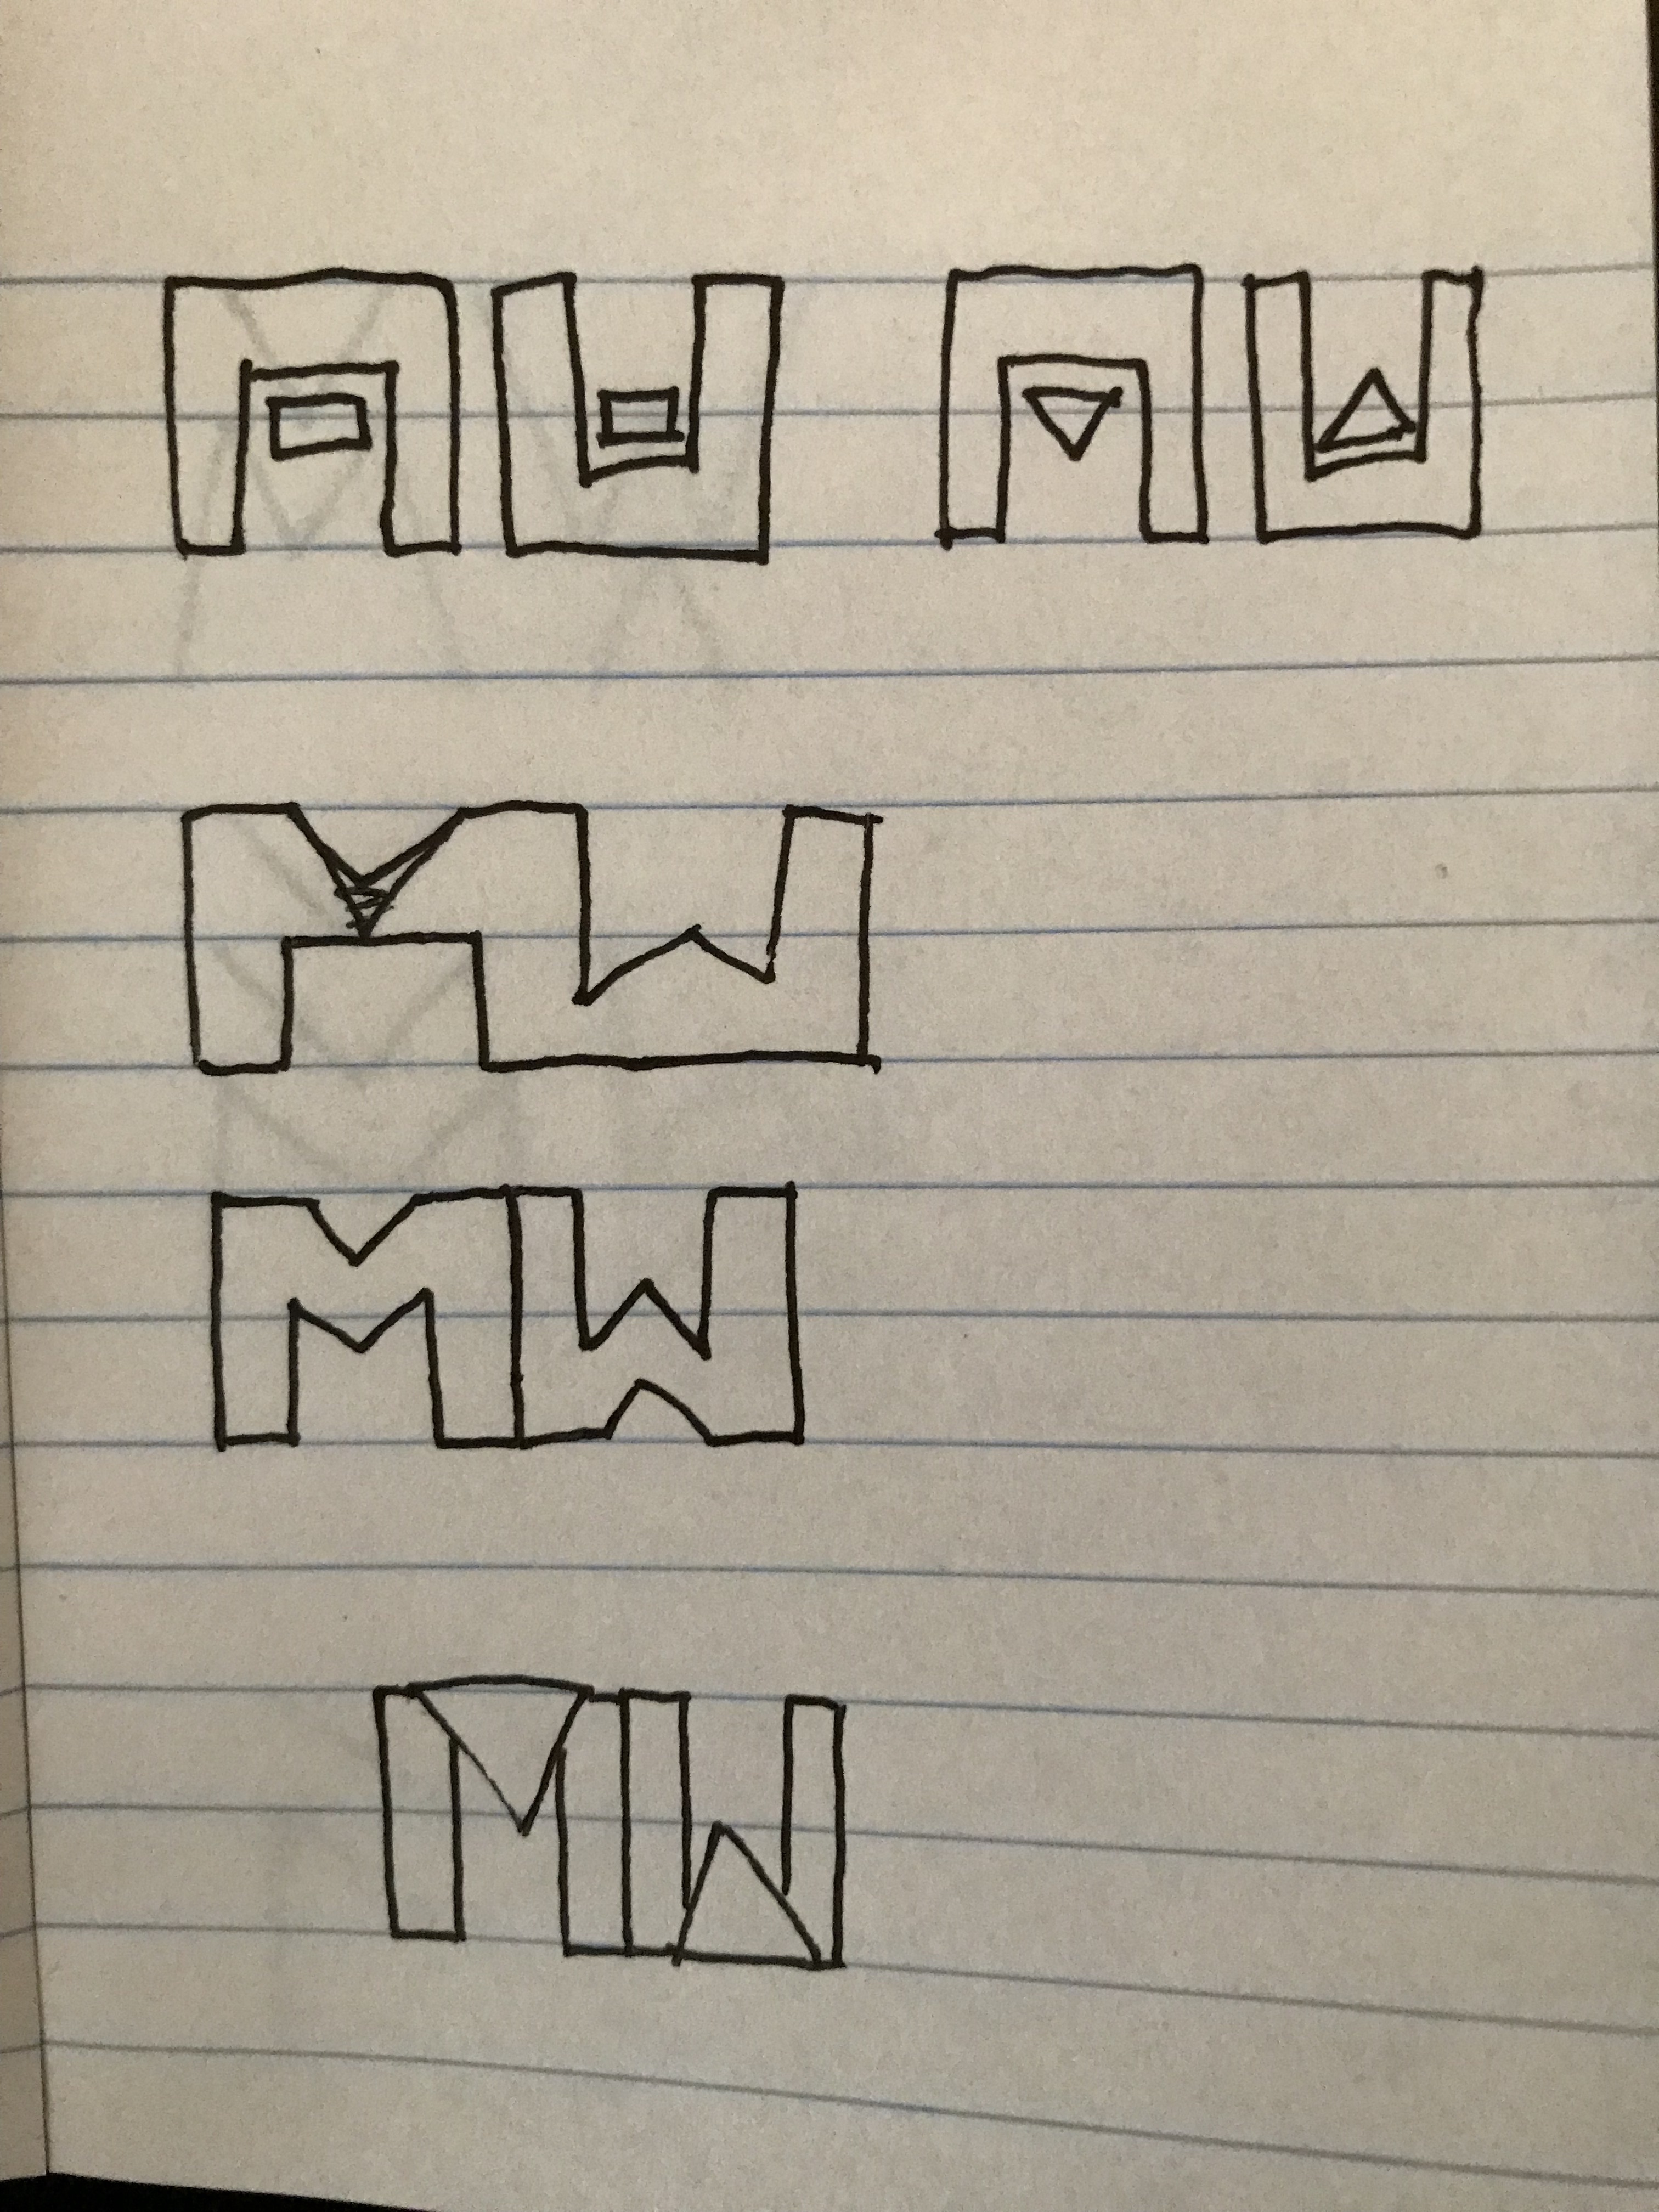 MW MW
MW
MW
MW